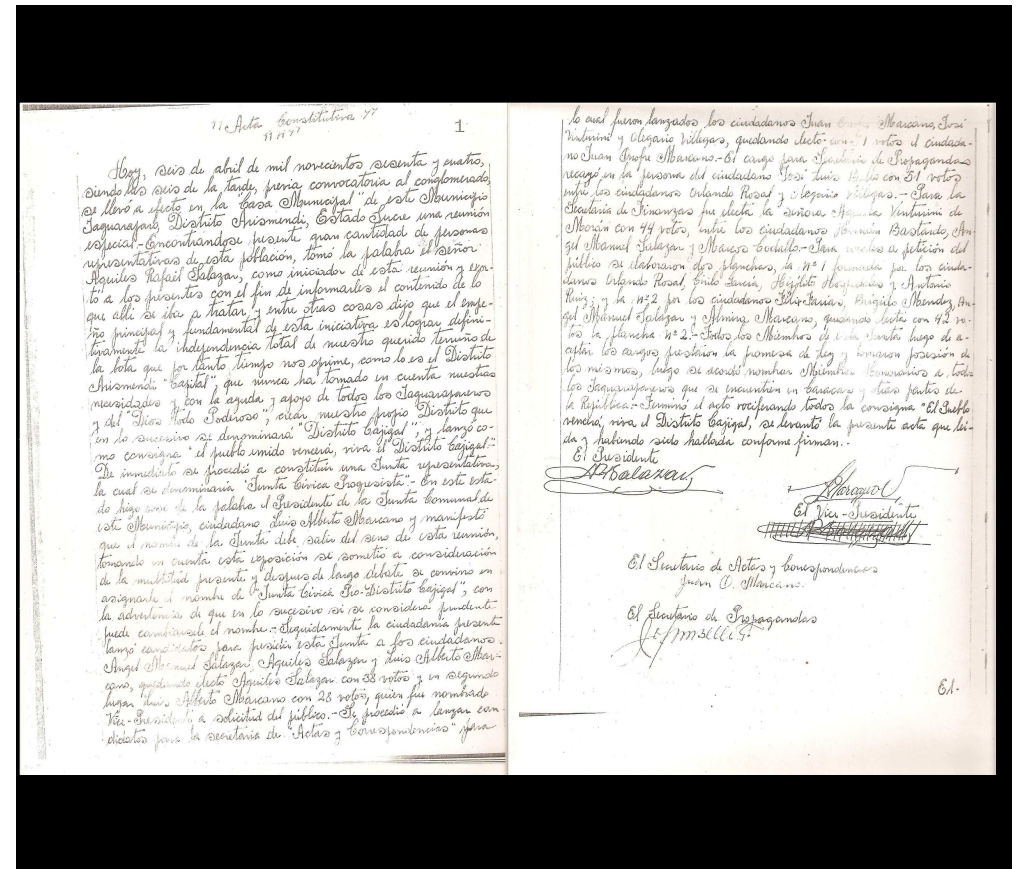 "Acta Constitutiva"
1
Hoy, seis de abril de mil novecientos sesenta y cuatro,
siendo las seis de la tarde, previa convocatoria al conglomerado,
se llevó a efecto en la "Casa Municipal" de este Municipio
Yaguaraparo, Distrito Arismendi, Estado Sucre una reunión
especial.- Encontrandose presente gran cantidad de personas
representativas de esta población, tomó la palabra el señor
Aquiles Rafael Salazar, como iniciador de esta reunión y expu-
to a los presentes con el fin de informarles el contenido de lo
que alli se iba a tratar, y entre otras cosas dijo que el empe-
ño principal y fundamental de esta iniciativa es lograr defini-
tivamente la independencia total de nuestro querido terruño de
la bota que por tanto tiempo nos oprime, como lo es el Distrito
Arismendi "Capital" que nunca ha tomado en cuenta nuestras
necesidades y con la ayuda y apoyo de todos los Yaguaraparos
y del "Dios Todo Poderoso", crear nuestro propio Distrito que
en lo sucesivo se denominará "Distrito Cajigal", y lanzó co-
mo consigna "el pueblo unido vencerá, viva el Distrito Cajigal".-
De inmediato se procedió a constituir una Junta representativa,
la cual se denominaria "Junta Civica Progresista".- En este esta-
do hizo uso de la palabra el Presidente de la Junta Comunal de
este Municipio, ciudadano Luis Alberto Marcano y manifestó
que el nombre de la Junta debe salir del seno de esta reunión,
tomando en cuenta esta exposición se sometió a consideración
de la multitud presente y despues de largo debate se convino en
asignarle el nombre de "Junta Civica Pro-Distrito Cajigal", con
la advertencia de que en lo sucesivo si se considera prudente
puede cambiarsele el nombre.- Seguidamente la ciudadania presente
lanzó candidatos para presidir esta Junta a los ciudadanos.
Angel Manuel Salazar, Aquiles Salazar y Luis Alberto Mar-
cano, quedando electo Aquiles Salazar con 38 votos y en segundo
lugar Luis Alberto Marcano con 28 votos, quien fue nombrado
Vice-Presidente a solicitud del público.- Se procedió a lanzar can-
didatos para la secretaria de "Actas y Correspondencias" para
lo cual fueron lanzados los ciudadanos Juan Onofre Marcano, José
Venturini y Olegario Villegas, quedando electo con 1 votos el ciudada-
no Juan Onofre Marcano.- El cargo para Secretario de Propagandas
recayó en la persona del ciudadano José Luis con 51 votos
entre los ciudadanos Orlando Rosal y Olegario Villegas.- Para la
Secretaria de Finanzas fue electa la señora Venturini de
Morán con 44 votos, entre los ciudadanos Hernán Bastardo, An-
gel Manuel Salazar y Marcos .- Para vocales a petición del
público se elaboraron dos planchas, la nº 1 formada por los ciuda-
danos Orlando Rosal, García, Hipólito y Antonio
Ruiz; y la nº 2 por los ciudadanos Félix Farias, Brigido Mendez, An-
gel Manuel Salazar y Marcano, quedando electa con 42 vo-
tos la plancha nº 2.- Todos los Miembros de esta Junta luego de a-
ceptar los cargos prestaron la promesa de Ley y tomaron posesión de
los mismos, luego se acordó nombrar Miembros Honorarios a todos
los Yaguaraparos que se encuentren en Caracas y otras partes de
la República.- Terminó el acto vociferando todos la consigna "El Pueblo
vencerá, viva el Distrito Cajigal", se levantó la presente acta que lei-
da y habiendo sido hallada conforme firman..
El Presidente
Salazar
El Vice-Presidente
El Secretario de Actas y Correspondencias
Juan O. Marcano.
El Secretario de Propagandas
El-